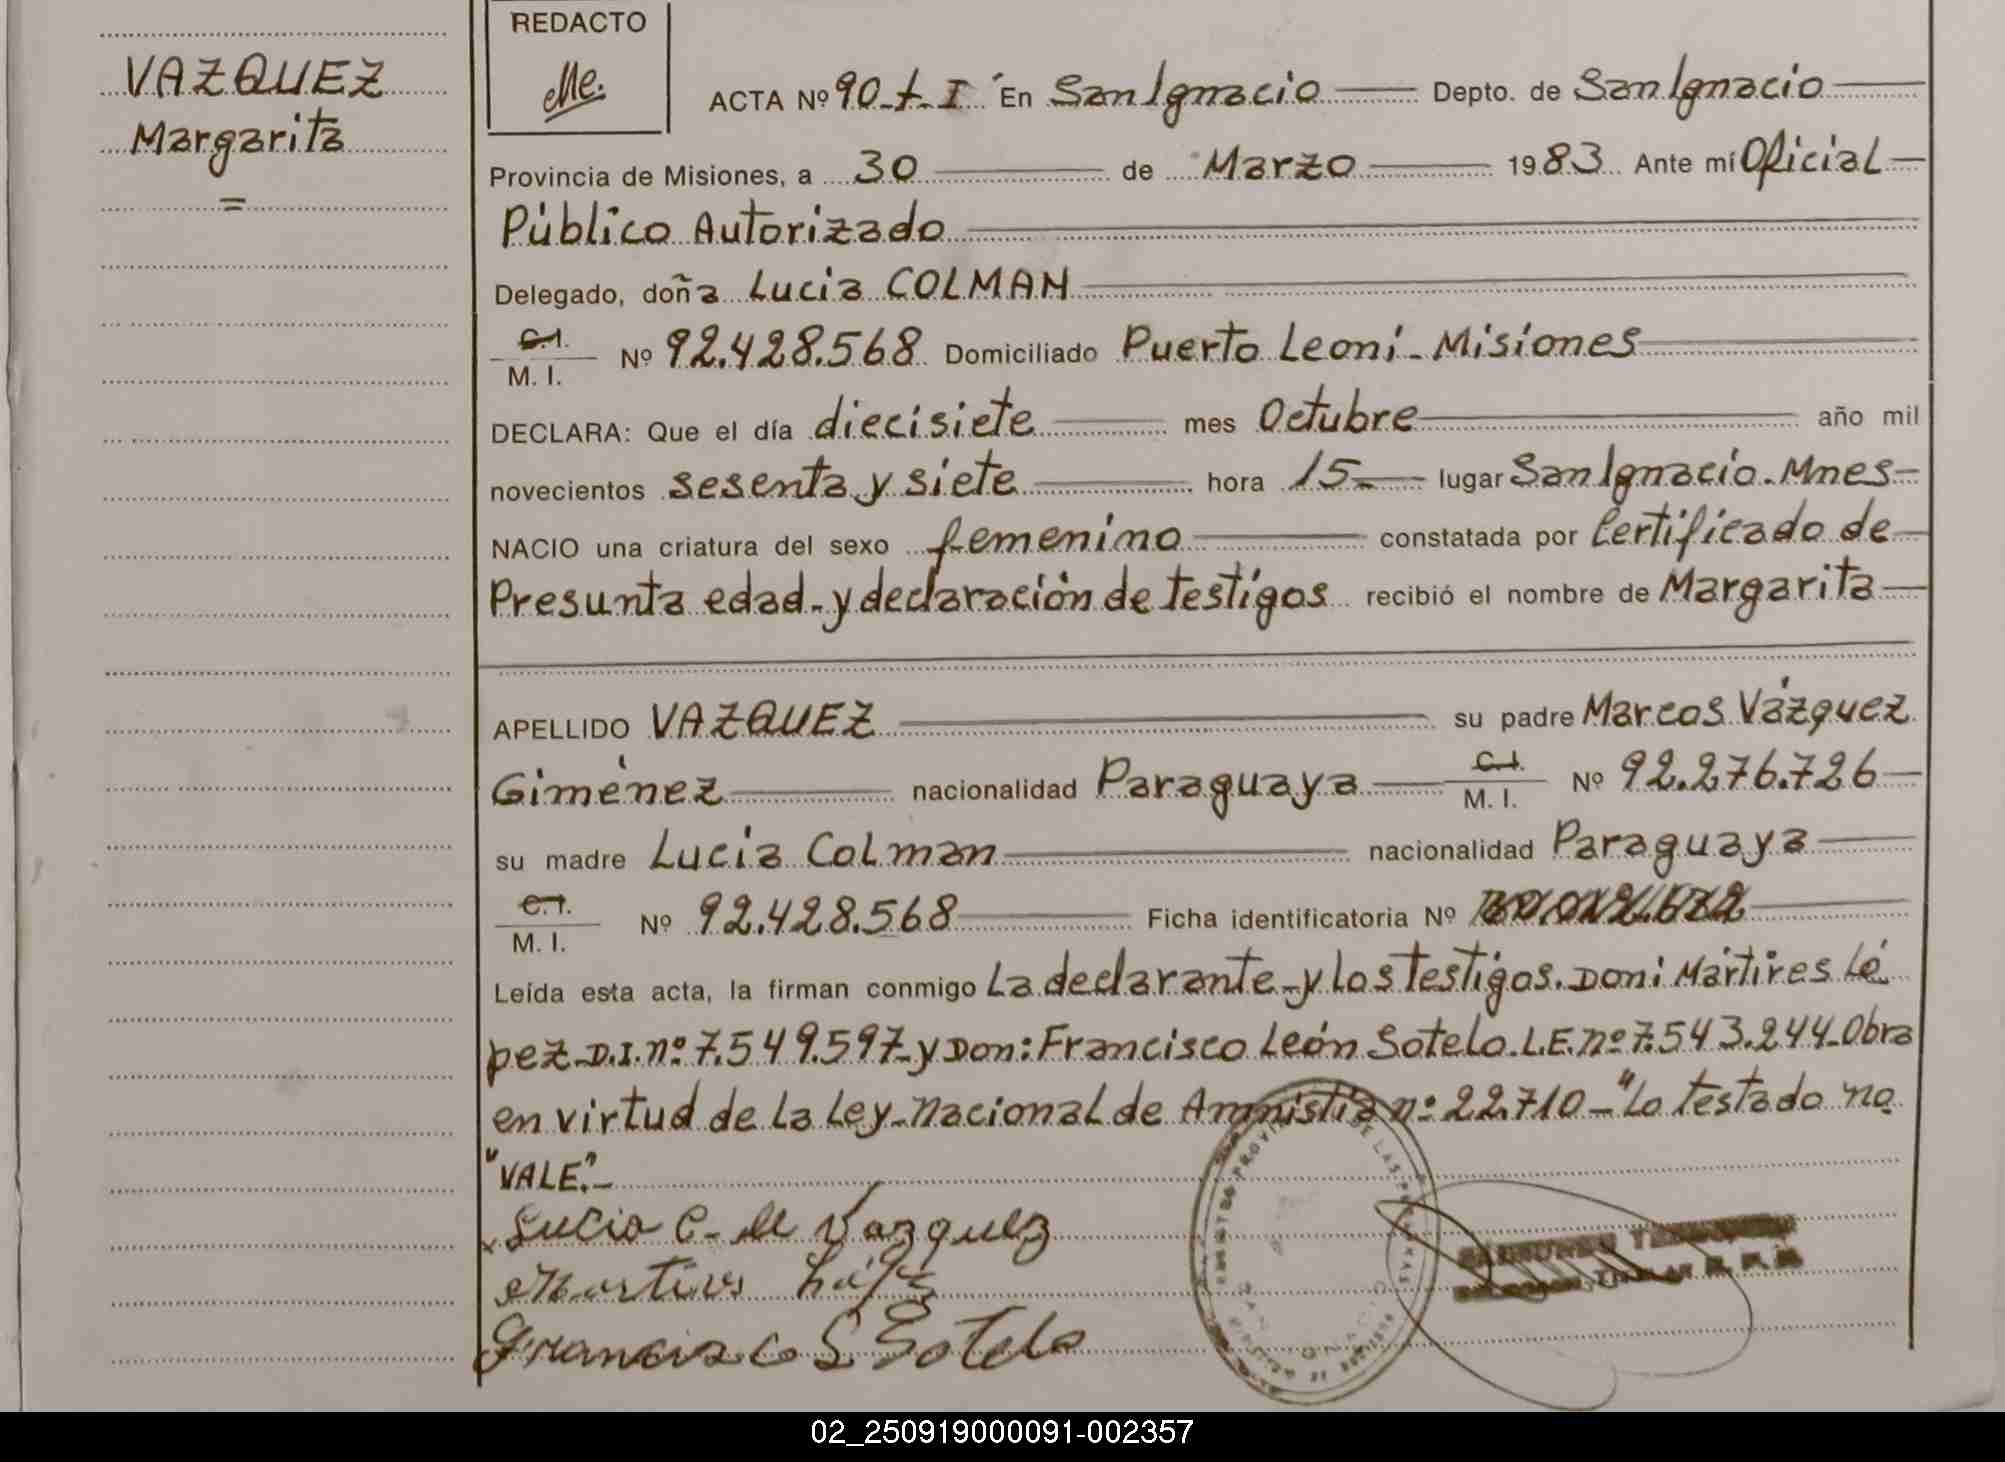 VAZQUEZ
Margarita
=
REDACTO
Me.
ACTA Nº 90-t-I En San Ignacio Depto. de San Ignacio
Provincia de Misiones, a 30 de Marzo 1983 Ante mí Oficial
Público Autorizado
Delegado, doña Lucia COLMAN
C.I.
M. I. Nº 92.428.568 Domiciliado Puerto Leoni - Misiones
DECLARA: Que el día diecisiete mes Octubre año mil
novecientos sesenta y siete hora 15 lugar San Ignacio. Mnes
NACIO una criatura del sexo femenino constatada por Certificado de
Presunta edad - y declaración de testigos recibió el nombre de Margarita
APELLIDO VAZQUEZ su padre Marcos Vázquez
Giménez nacionalidad Paraguaya C.I. M. I. Nº 92.276.726
su madre Lucia Colman nacionalidad Paraguaya
C.I.
M. I. Nº 92.428.568 Ficha identificatoria Nº
Leída esta acta, la firman conmigo La declarante - y los testigos. Don: Mártires Ló
pez - D.I. nº 7.549.597 - y Don: Francisco León Sotelo. L.E. nº 7.543.244 - Obra
en virtud de la Ley - Nacional de Amnistia nº 22.710 - "Lo testado no
"VALE." -
Lucia C. de Vazquez
Martires López
Francisco L Sotelo
SAN IGNACIO
02_250919000091-002357